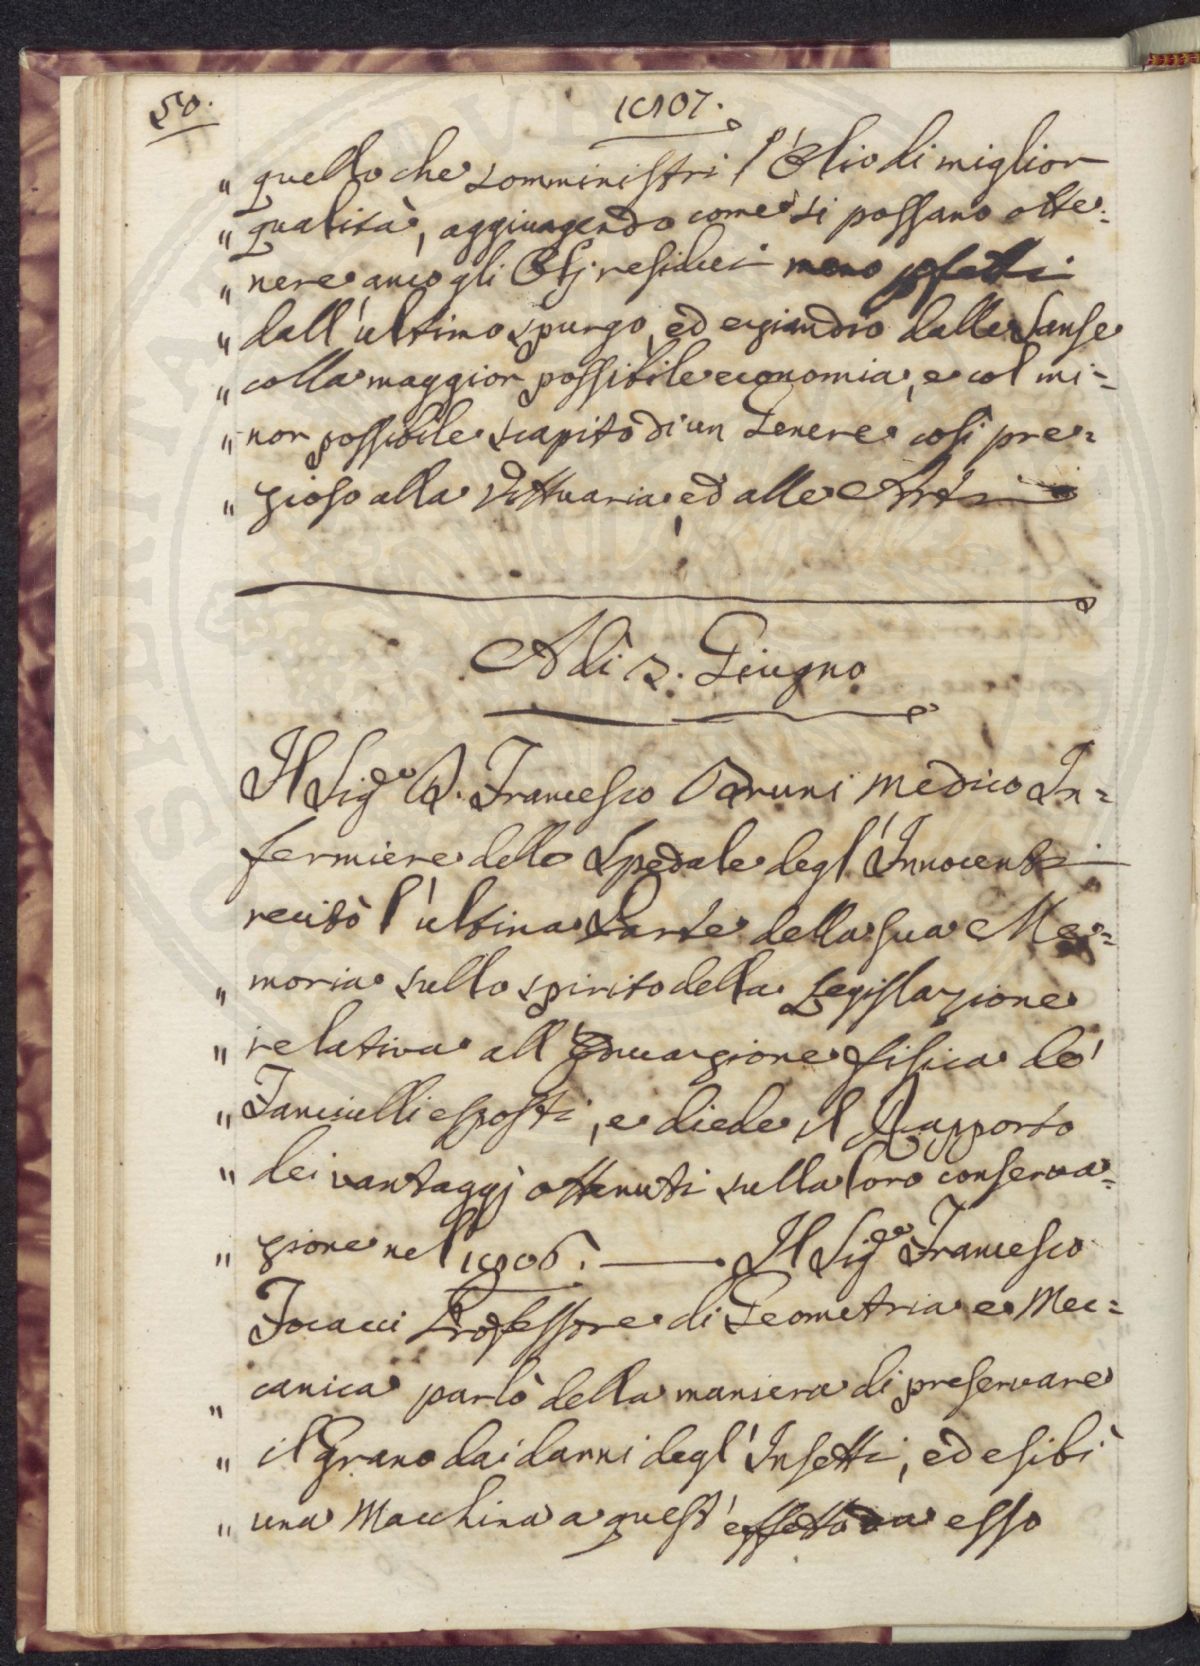 50.
1807.
" quello che somministri l'Olio di miglior
" qualità, aggiungendo come si possano otte:
" nere anco gli Olj residui meno pfetti
" dall'ultimo spurgo, ed eziandio dalle Sanse
" colla maggior possibile economia, e col mi=
" nor possibile scapito di un Genere così pre=
" zioso alla Vittuaria, ed alle Arti
Adì 3. Giugno
Il Sigre D. Francesco Bruni Medico In=
fermiere dello Spedale degl'Innocenti
recitò l'ultima Parte della sua Me=
" moria sullo spirito della Legislazione
" relativa all'Educazione fisica de'
" Fanciulli esposti, e diede il Rapporto
" dei vantaggj ottenuti sulla loro conserva=
" zione nel 1806. — Il Sigre Francesco
Focacci Professore di Geometria e Mec=
" canica parlò della maniera di preservare
" il Grano dai danni degl'Insetti, ed esibì
" una Macchina a quest'effetto da esso